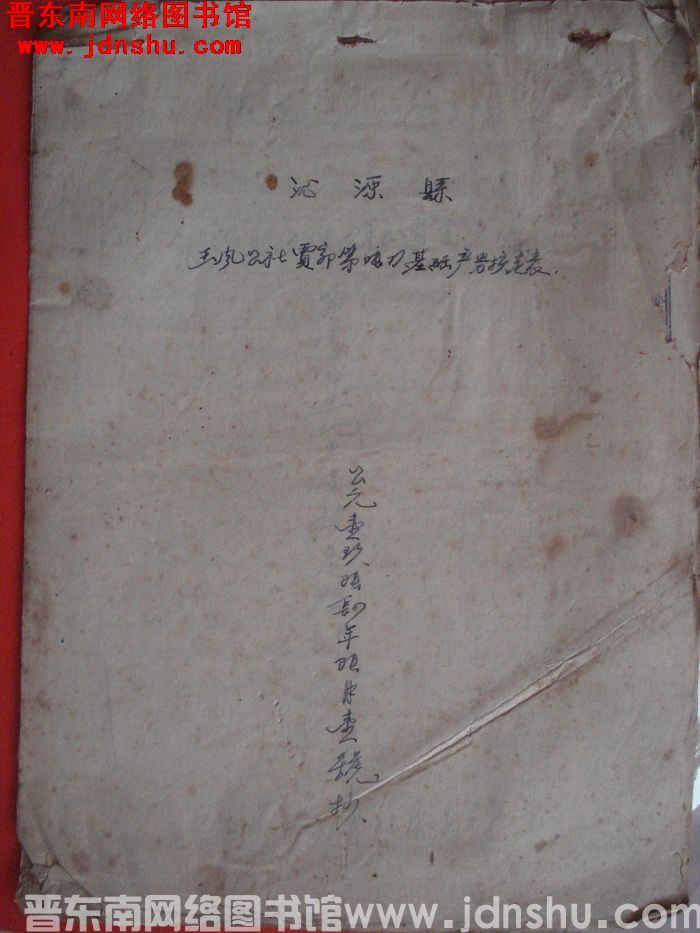 晋东南网络图书馆
www.jdnshu.com
沁源縣
王凤公社贾郭第 基础产量核定表.
公元壹玖伍 年伍月壹號抄
晋东南网络图书馆www.jdnshu.com